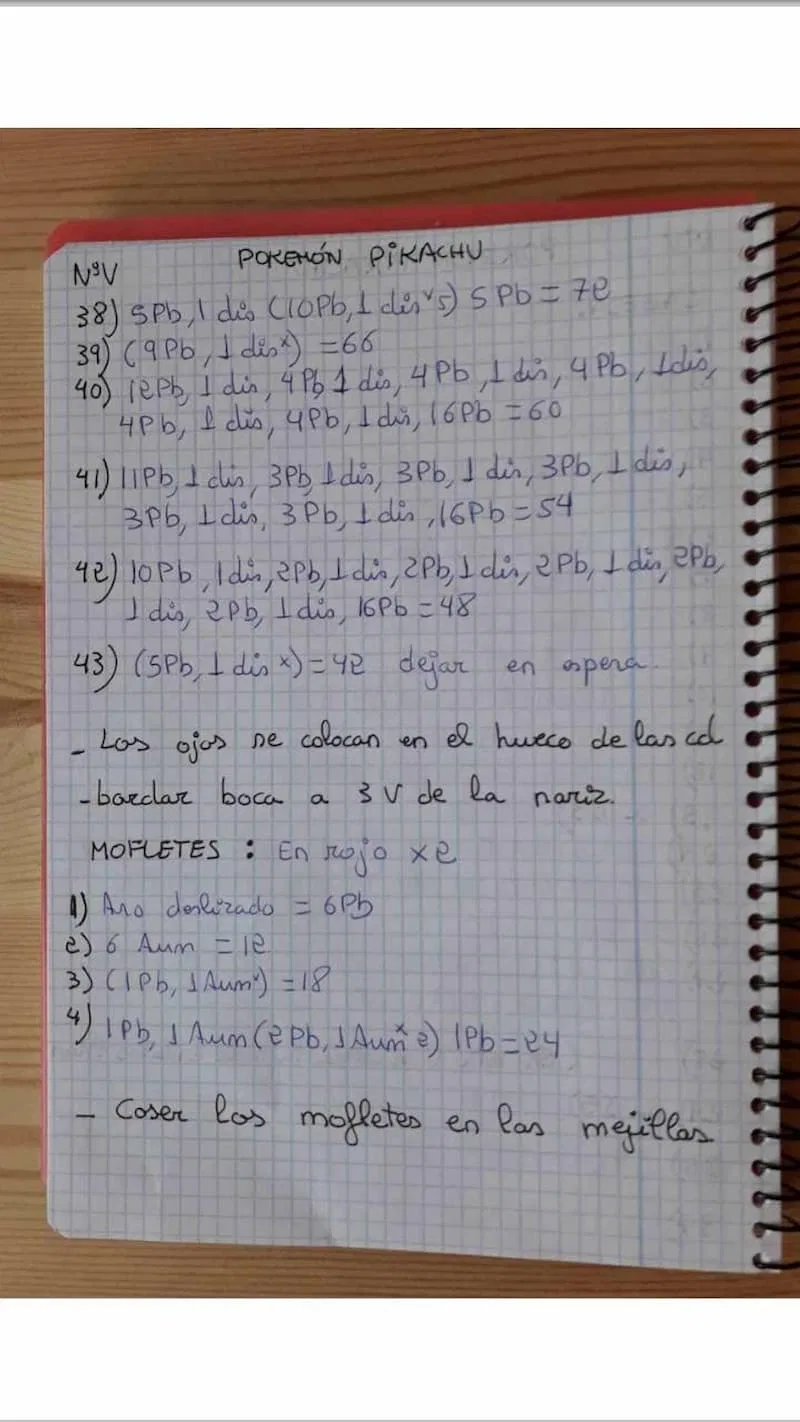 POKEMÓN PIKACHU
NºV
38) 5Pb, 1 dis (10Pb, 1 dis x5) 5 Pb = 72
39) (9Pb, 1 dis x) = 66
40) 12Pb, 1 dis, 4Pb 1 dis, 4Pb, 1 dis, 4Pb, 1 dis,
4Pb, 1 dis, 4Pb, 1 dis, 16Pb = 60
41) 11Pb, 1 dis, 3Pb, 1 dis, 3Pb, 1 dis, 3Pb, 1 dis,
3Pb, 1 dis, 3Pb, 1 dis, 16Pb = 54
42) 10Pb, 1 dis, 2Pb, 1 dis, 2Pb, 1 dis, 2Pb, 1 dis, 2Pb,
1 dis, 2Pb, 1 dis, 16Pb = 48
43) (5Pb, 1 dis x) = 42 dejar en espera.
- Los ojos se colocan en el hueco de las cd
- bordar boca a 3 V de la nariz.
MOFLETES : En rojo x2
1) Aro deslizado = 6Pb
2) 6 Aum = 12
3) (1Pb, 1 Aum x) = 18
4) 1Pb, 1 Aum (2Pb, 1 Aum x 2) 1Pb = 24
- Coser los mofletes en las mejillas